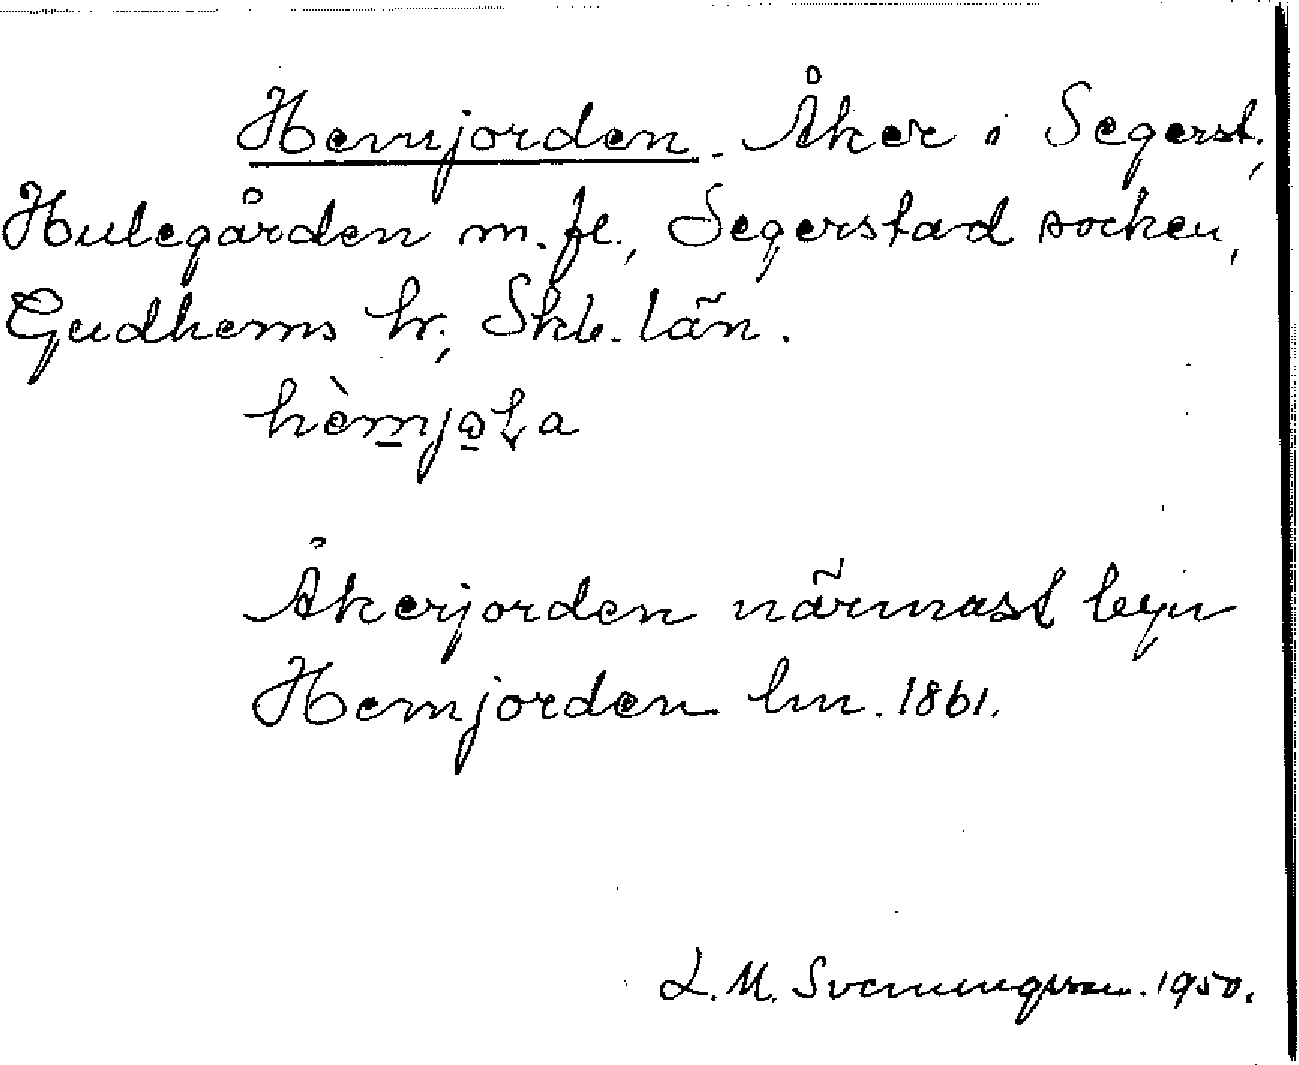 Hemjorden. Åker i Segerst.,
Hulegården m. fl., Segerstad socken,
Gudhems hr, Skb. län.
Åkerjorden närmast byn
Hemjorden lm. 1861.
L. M. Svenungsson. 1950.